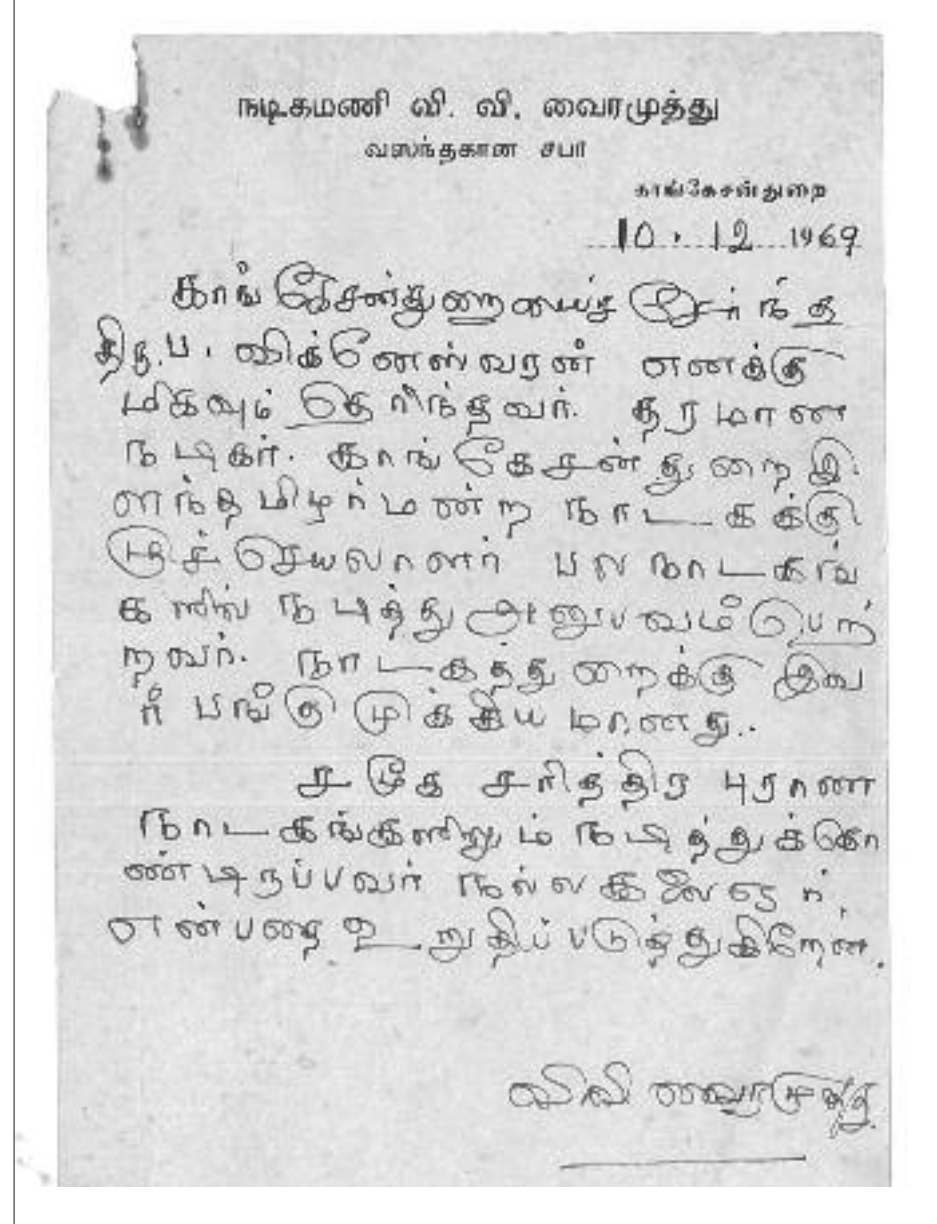 நடிகமணி வி. வி. வைரமுத்து
வஸந்தகான சபா
காங்கேசன்துறை
10.12 1969
காங்கேசன்துறையைச் சேர்ந்த
திரு.ப. விக்னேஸ்வரன் எனக்கு
மிகவும் தெரிந்தவர். தரமான
நடிகர். காங்கேசன்துறை இ
ளந்தமிழர்மன்ற நாடகக்கு
ழுச்செயலாளர் பலநாடகங்
களில் நடித்து அனுபவம்பெற்
றவர். நாடகத்துறைக்கு இவ
ர் பங்கு முக்கியமானது..
சமூக சரித்திர புராண
நாடகங்களிலும் நடித்துக்கொ
ண்டிருப்பவர் நல்லகலைஞர்
என்பதை உறுதிப்படுத்துகிறேன்.
வி வி வைரமுத்து